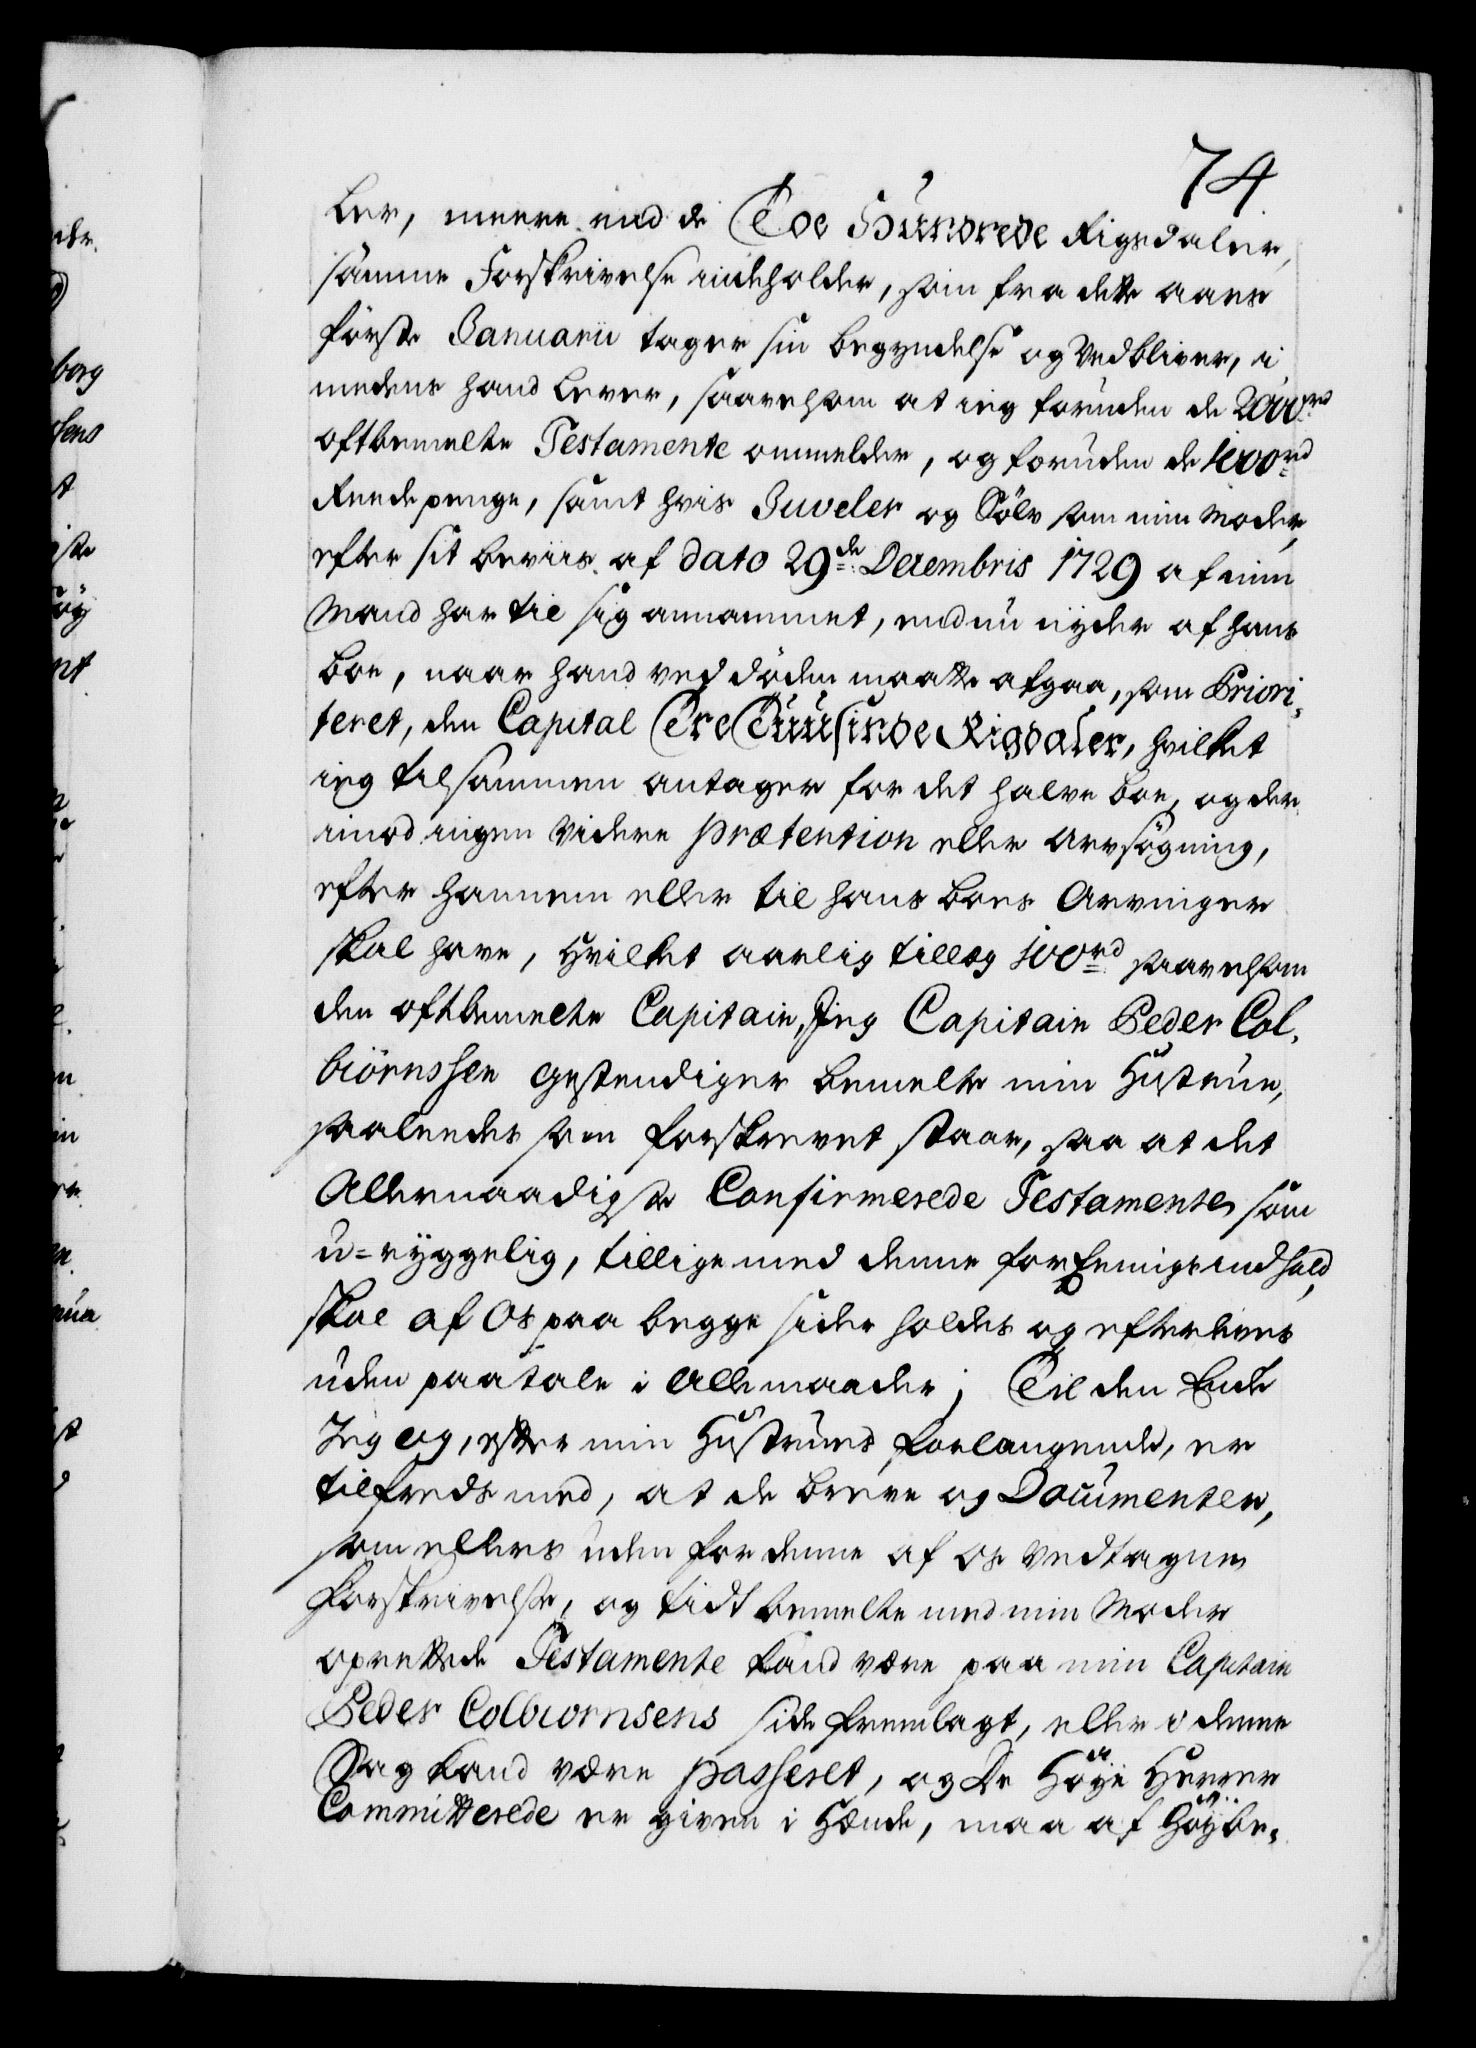 74
ler, meere end de Toe Hundrede Rigsdaler,
samme Forskrivelse indeholder, som fra dette aars
förste Januarii tager sin begyndelse og Vedbliver, i
medens hand Lever, saavelsom at ieg foruden de 2000rd
oftbemelte Testamente ommelder, og foruden de 1000rd
Reede penge, samt hvis Juveler og Sölv som min Moder,
efter sit beviis af dato 29de Decembris 1729 af min
Mand har til sig annammet, endnu nyder af hans
boe, naar hand ved döden maatte afgaa, som Priori-
teret, den Capital Tre Tuusinde Rigdaler, hvilket
ieg tilsammen antager for det halve boe, og der
imod ingen videre prætention eller arvsögning,
efter hannem eller til hans boes Arvinger
skal have, Hvilket aarlig tillæg 100rd saavelsom
den oftbemelte Capitain, Jeg Capitain Peder Col-
biörnssen gestendiger bemelte min Hustrue,
saaledes som forskrevet staar, saa at det
Allernaadigste Confirmerede Testamente, som
u-ryggelig, tillige med denne forEenings indhold,
skal af Os paa begge sider holdes og efterleves
uden paatale i Alle maader; Til den Ende
Jeg og, efter min Hustrues forlangende, er
tilfreds med, at de breve og Documenter,
som ellers uden for denne af os vedtagne
forskrivelse, og tidt bemelte med min Moder
oprettede Testamente kand være paa min Capitain
Peder Colbiornsens side fremlagt, eller i denne
Sag kand være passeret, og De Höye Herrer
Committerede er given i Hænde, maa af Höybe-